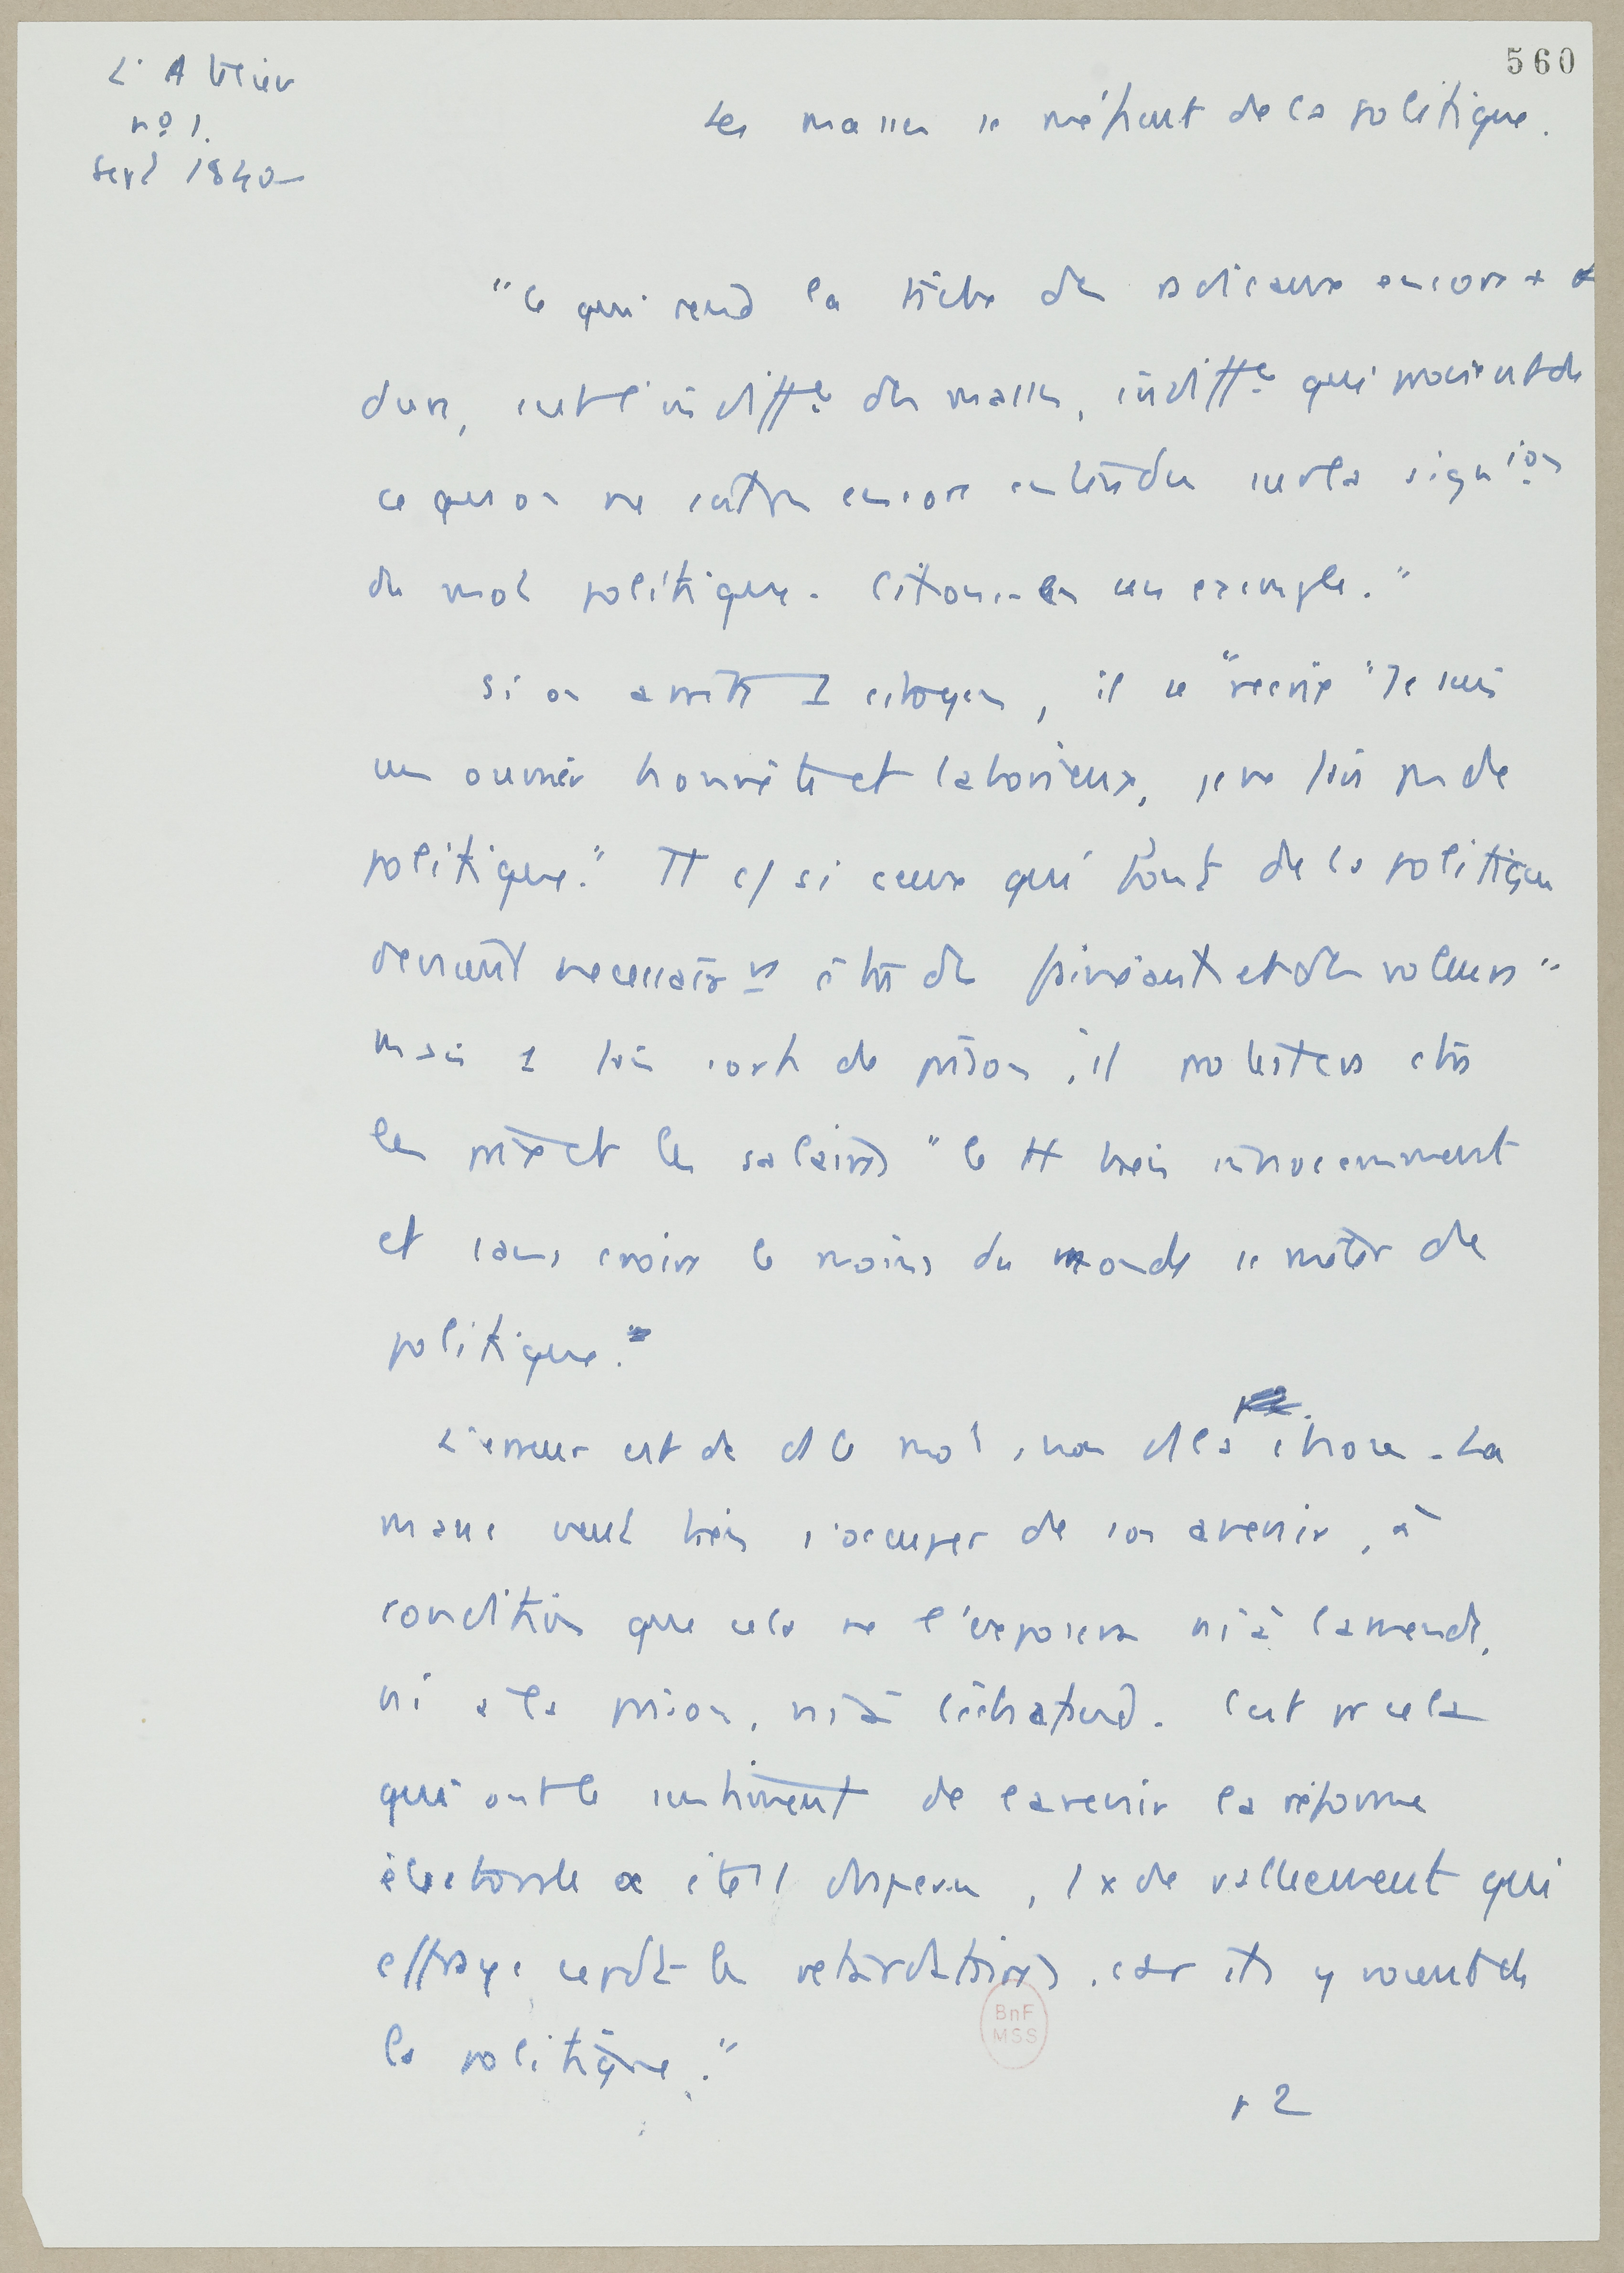 560
L'Atelier
n° 1.
Sept 1840
Les masses se méfient de la politique.
"Ce qui rend la tâche des radicaux encore +
dure, c'est l'indiff^ce des masses, indiff^ce qui provient de
ce qu'on ne s'est pas encore entendu sur la sign^ion
du mot politique. Citons-en un exemple."
Si on arrête 1 citoyen, il se "récrie "Je suis
un ouvrier honnête et laborieux, je ne fais pas de
politique." Tt c/ si ceux qui font de la politique
devaient nécessair^nt être des fainéants et des voleurs"
mais 1 fois sorti de prison, il protestera
les prix et les salaires "le tt bien innocemment
et sans croire le moins du monde se mêler de
politique."
L'erreur est ds le mot, non ds la chose. La
masse veut bien s'occuper de son avenir, à
condition que cela ne l'exposera ni à l'amende,
ni à la prison, ni à l'échafaud. C'est pr cela
qui ont le sentiment de l'avenir la réforme
électorale
de ralliement qui
effraye cepdt les retardataires, car ils y voient de
la politique."
p 2
BnF
MSS